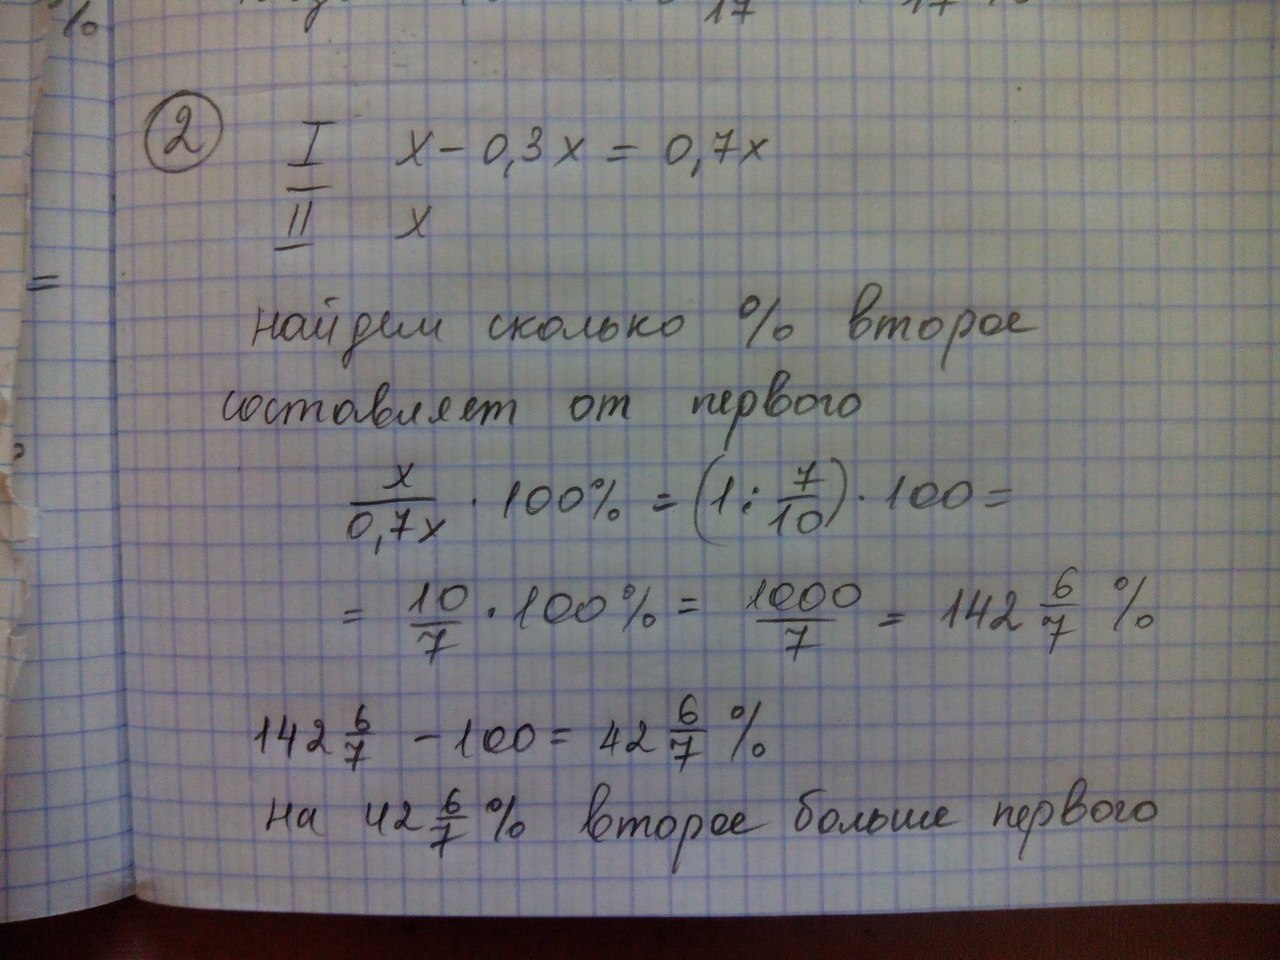 %
17 17
2
I x - 0,3x = 0,7x
II x
=
найдем сколько % второе
составляет от первого
x/0,7x · 100% = (1 : 7/10) · 100 =
= 10/7 · 100% = 1000/7 = 142 6/7 %
142 6/7 - 100 = 42 6/7 %
на 42 6/7 % второе больше первого